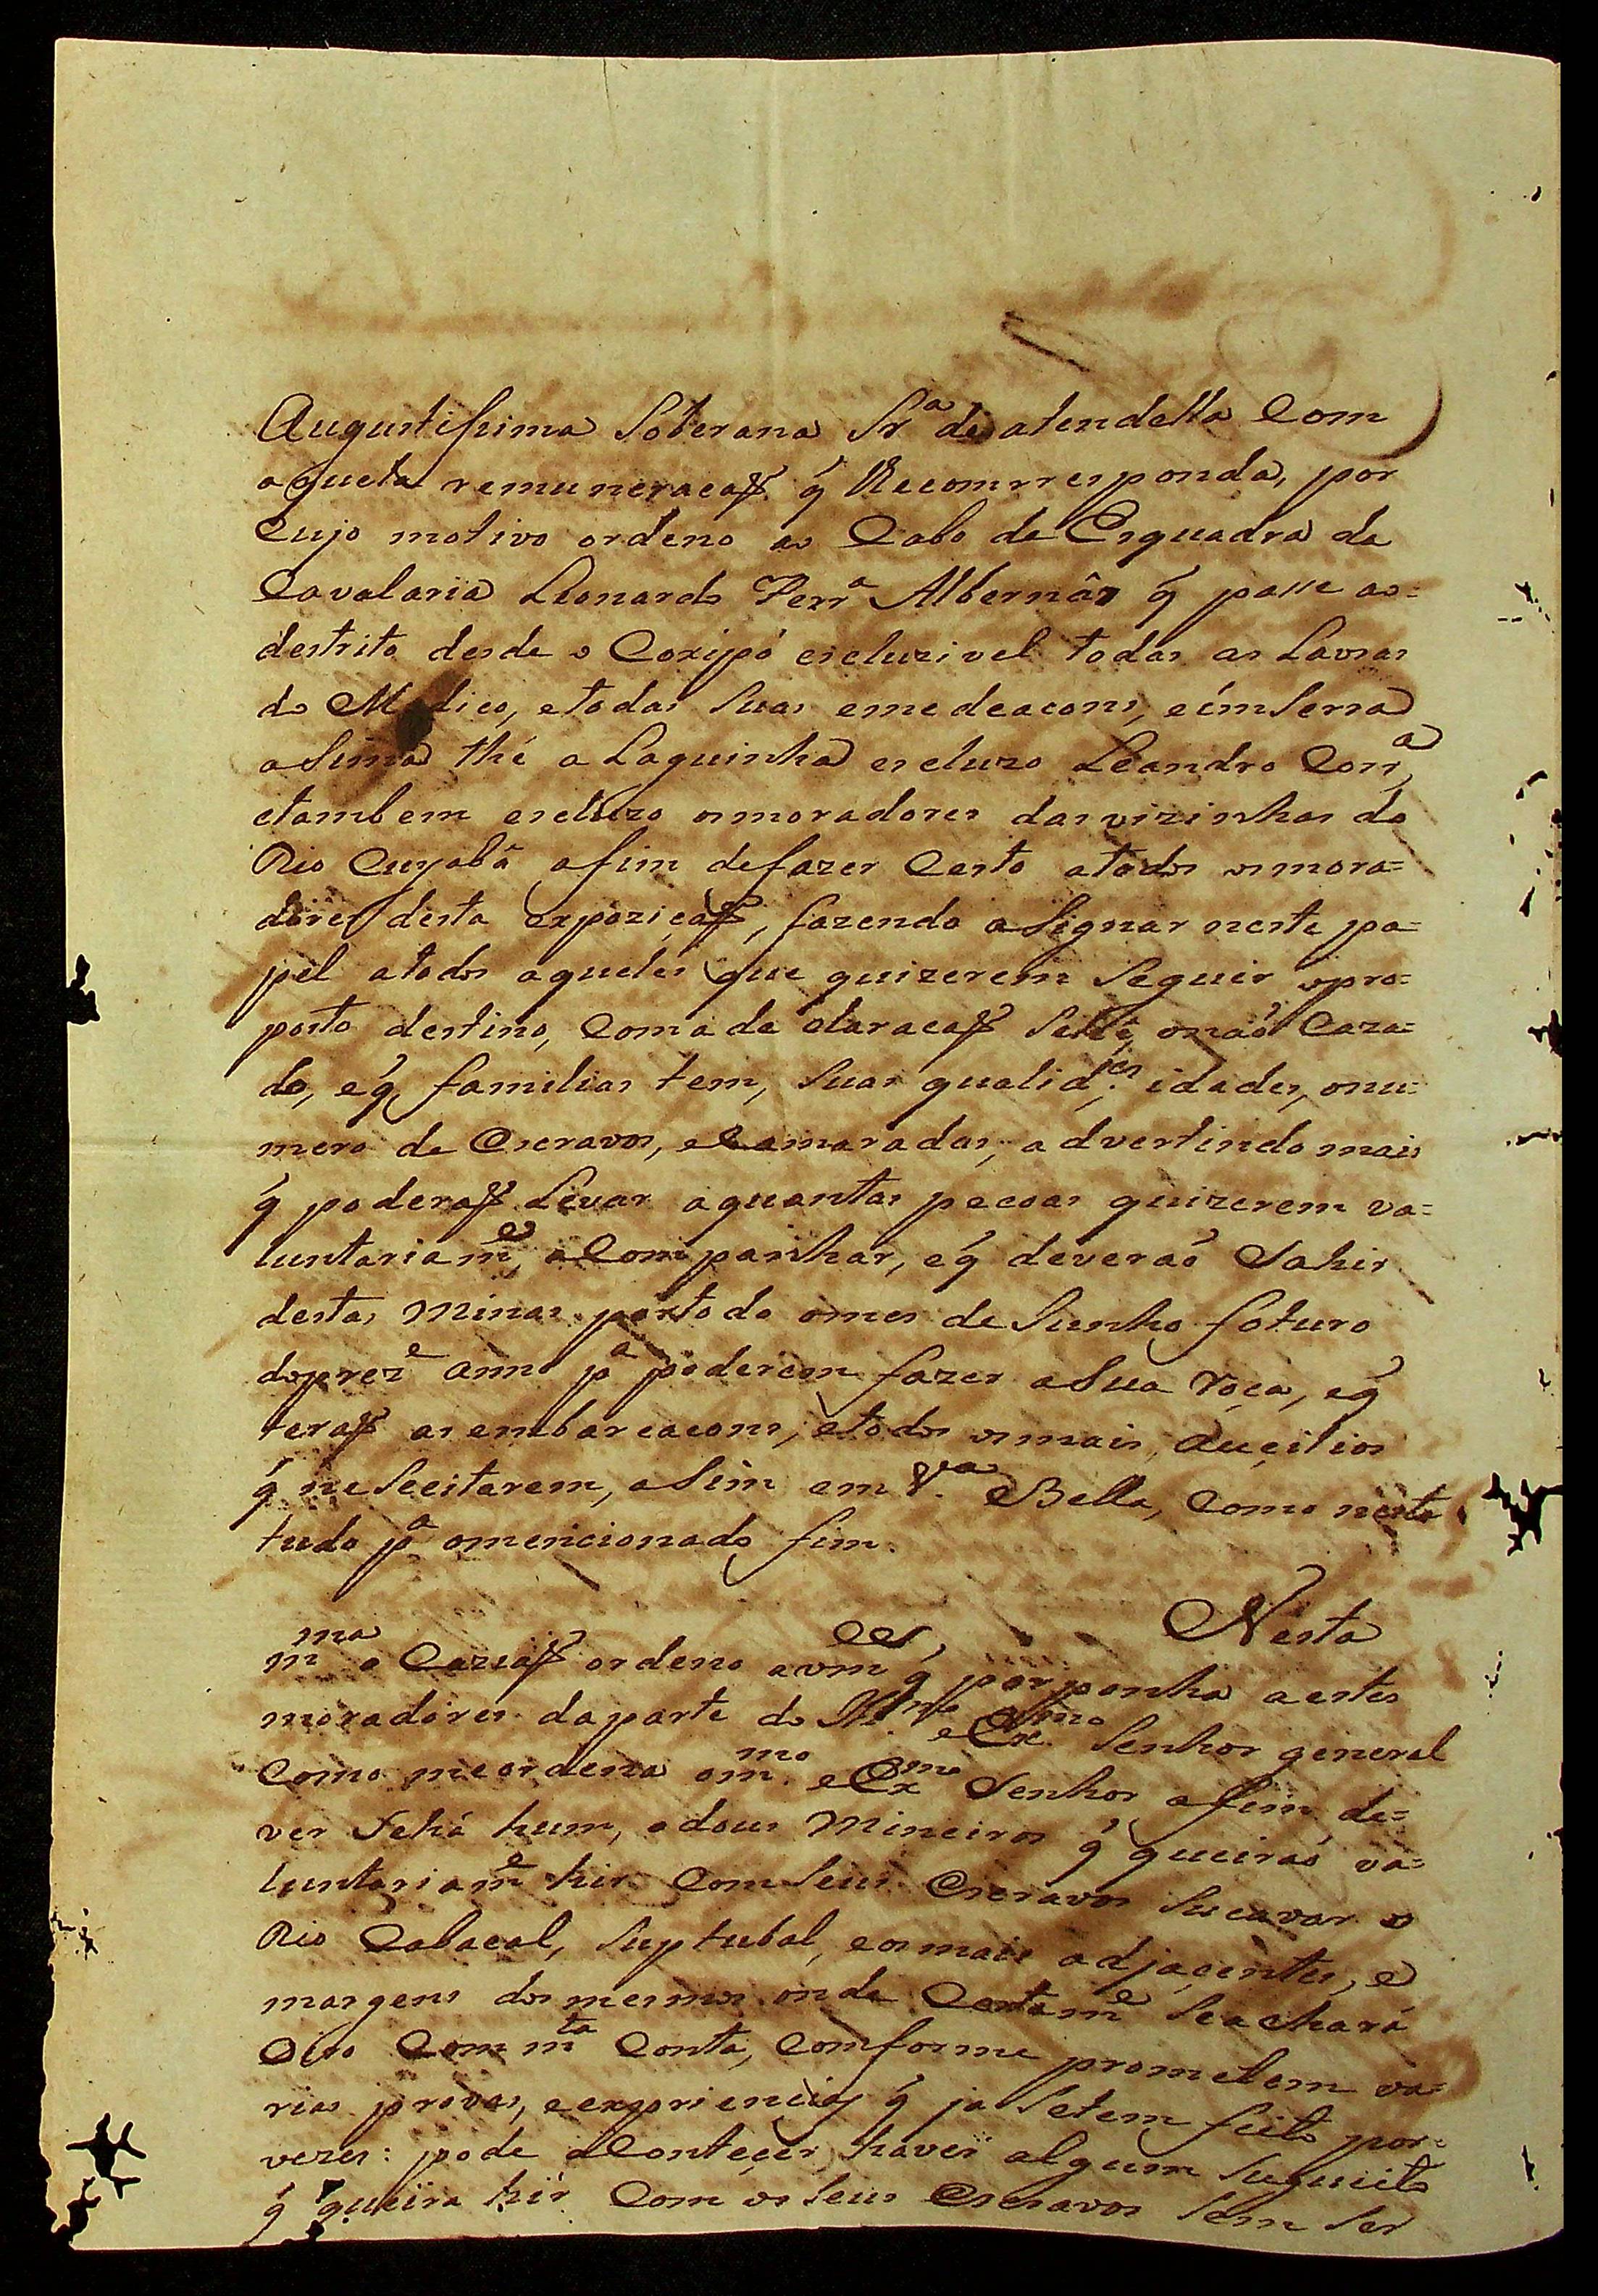 Augustissima Soberana Sr.ª de atendella Com
aquela remuneracaõ q̃ Recomrresponda, por
Cujo motivo ordeno ao Cabo de Esquadra da
Cavalaria Leonardo Perrª Albernâz q̃ passe ao=
destrito desde o Coxipó escluzivel todas as Lavras
do Medico, e todas suas emedeacons, eímserra
asima thé a Laguinha escluzo Leandro Corrª,
etambem escluzo osmoradores das vizinhas do
Rio Cuyabâ afim defazer Certo atodos osmora=
dores desta expoziçaõ, fazendo aSignar neste pa=
pel atodos aqueles que quizerem Seguir opro=
posto destino, Coma de claracaõ Sehé, onaó Caza=
do, eq̃ familias tem, Suas qualid.es idades, onu=
mero de Escravos, eCamaradas, advertindo mais
q̃ poderaõ Levar aquantas pecoas quizerem vo=
luntariamᵉ aCompanhar, eq̃ deveraó Sahir
destas Minas portodo omes de Junho foturo
doprezᵉ anno pª poderem fazer aSua roça, eq̃
teraõ as embarcacons, etodos osmais auçilios
q̃ neSecitarem, aSim em Vª Bella, Como nesta
tudo pª omencionado fim.
Nesta
mma o Caziaõ ordeno avmces, q̃ porponha aestes
moradores daparte do Illmo eExmo Senhor general
Como meordena ommo eExmo Senhor afim de=
ver Sehá hum, edous Mineiros q̃ queiraó vo=
luntariamᵉ hir ComSeus Escravos Sucavar o
Rio Cabacal, Suptubal, eosmais adjacentes, e
margens dosmesmos onde Certamᵉ Seachará
Oiro Com mta Conta, Comforme prometem va=
rias provas, eexpriencias q̃ ja Setem feito por=
vezes: pode aConteçer haver algum Sugueito
q̃ queira hir Com os Seus Escravos Sem Ser